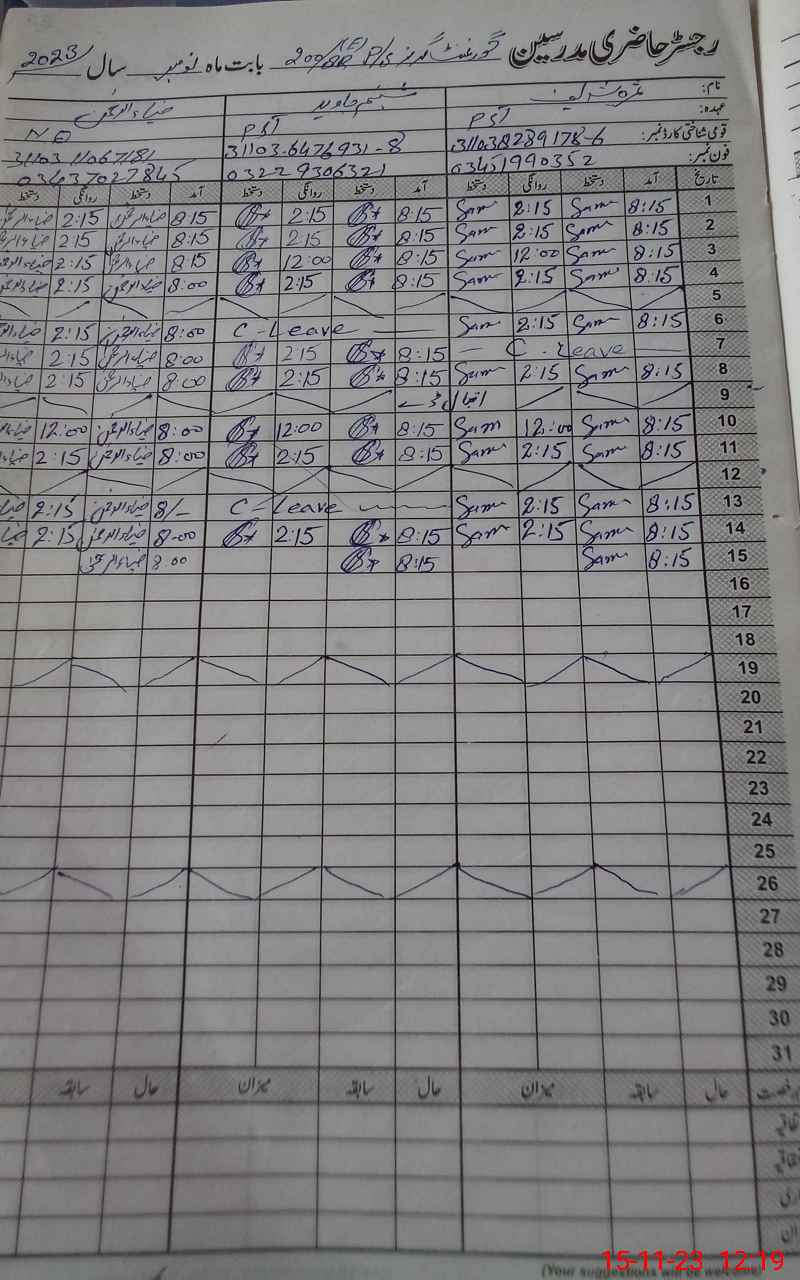 رجسٹر حاضری مدرسین گورنمنٹ گرلز P/S 200/8R (E) بابت ماہ نومبر سال 2023
نام: شریف جاوید ضیاءالرحمن
عہدہ: PST PST NQ
قومی شناختی کارڈ نمبر: 31103-6476931-8
فون نمبر: 03451990352 03229306321 03437027845
تاریخ آمد دستخط روانگی دستخط آمد دستخط روانگی دستخط آمد دستخط روانگی دستخط
1 8:15 Sam 2:15 Sam 8:15 2:15 8:15 ضیاءالرحمن 2:15
2 8:15 Sam 2:15 Sam 8:15 2:15 8:15 ضیاءالرحمن 2:15
3 8:15 Sam 12:00 Sam 8:15 12:00 8:15 ضیاءالرحمن 2:15
4 8:15 Sam 2:15 Sam 8:15 2:15 8:00 ضیاءالرحمن 2:15
5
6 8:15 Sam 2:15 Sam C-Leave 8:00 ضیاءالرحمن 2:15
7 C. Leave 8:15 2:15 8:00 ضیاءالرحمن 2:15
8 8:15 Sam 2:15 Sam 8:15 2:15 8:00 ضیاءالرحمن 2:15
9 اقبال ڈے
10 8:15 Sam 12:00 Sam 8:15 12:00 8:00 ضیاءالرحمن 12:00
11 8:15 Sam 2:15 Sam 8:15 2:15 8:00 ضیاءالرحمن 2:15
12
13 8:15 Sam 2:15 Sam C-Leave 8/- ضیاءالرحمن 2:15
14 8:15 Sam 2:15 Sam 8:15 2:15 8-00 ضیاءالرحمن 2:15
15 8:15 Sam 8:15 8:00 ضیاءالرحمن
16
17
18
19
20
21
22
23
24
25
26
27
28
29
30
31
حال سابقہ میزان حال سابقہ میزان حال سابقہ
(Your suggestions will be welcome)
15-11-23 12:19